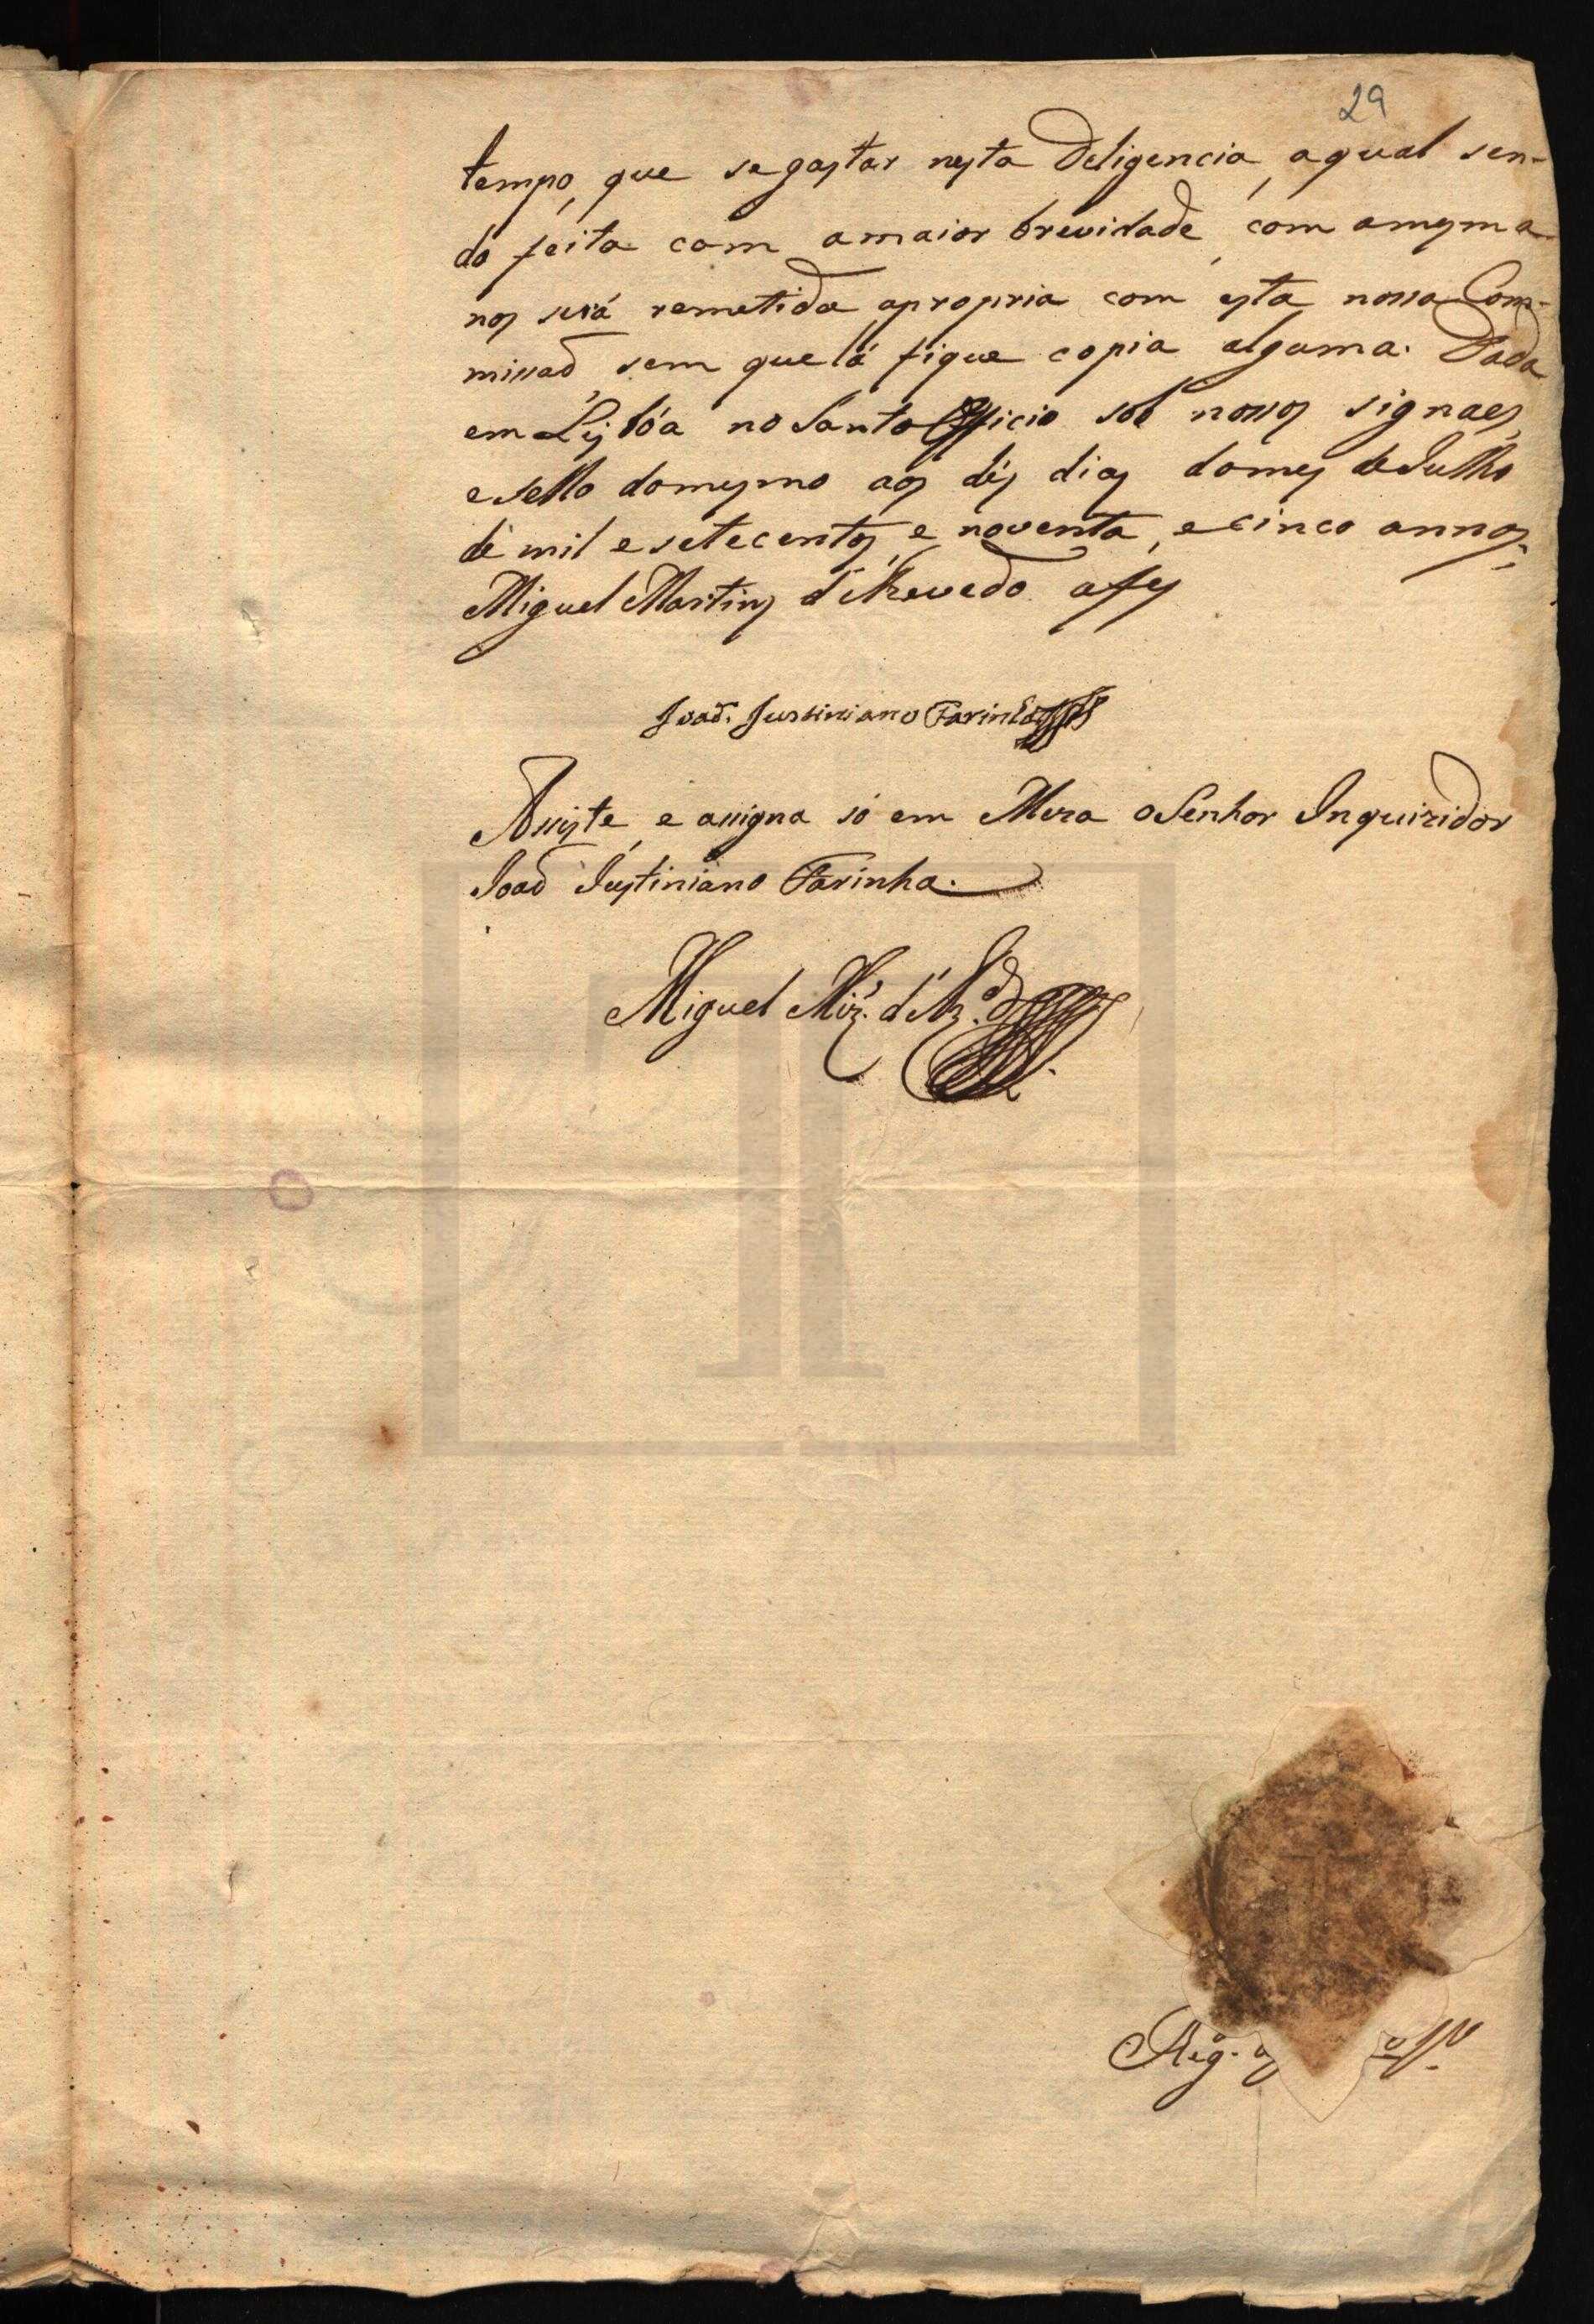 29
tempo, que se gastar nesta Deligencia, a qual sen-
do feita com a maior brevidade, com a mesma
nos será remetida a propria com esta nossa Com-
missaõ sem que lá fique copia alguma. Dada
em Lisbóa no Santo Officio sob nossos signaes,
e sello do mesmo aos dés dias do mes de Julho
de mil e setecentos, e noventa, e cinco annos.
Miguel Martins d'Azevedo a fes
Joaõ Justiniano Farinha
Assiste, e assigna só em Meza o Senhor Inquizidor
Joaõ Justiniano Farinha.
Miguel Miz. d'Az.do
Reg.